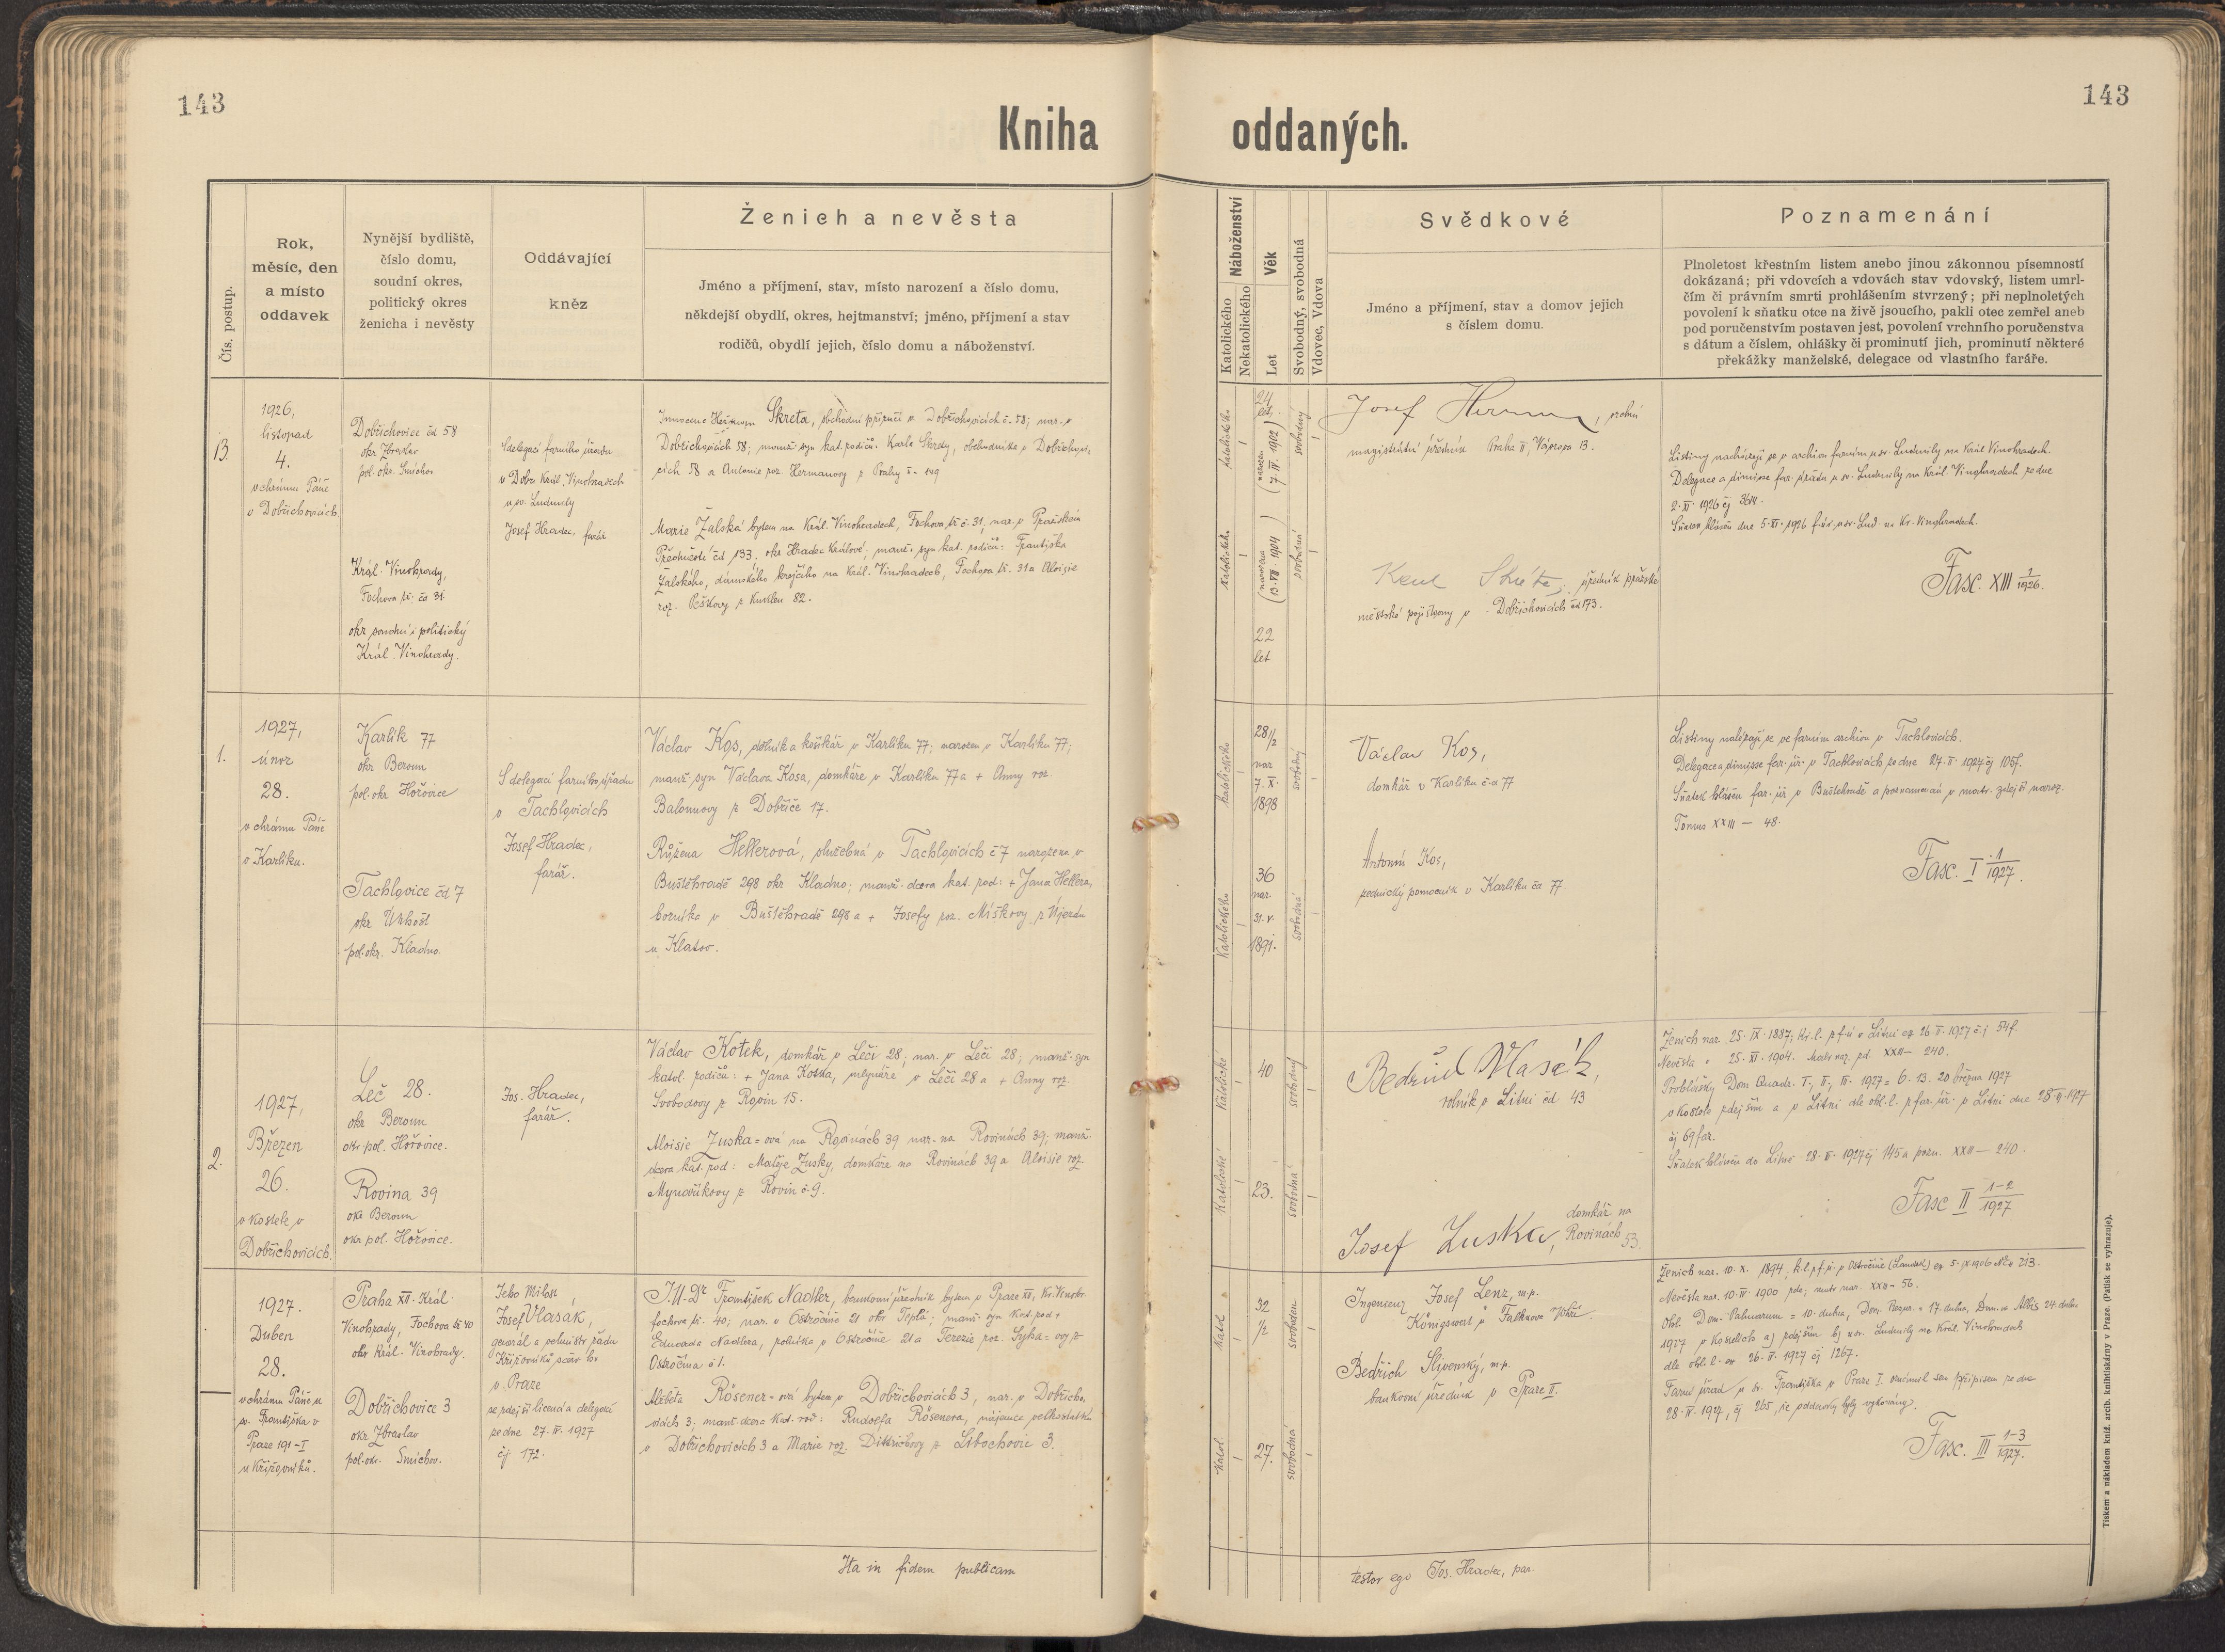 143
143
Kniha oddaných.
Čís. postup.
Rok,
měsíc, den
a místo
oddavek
Nynější bydliště,
číslo domu,
soudní okres,
politický okres
ženicha i nevěsty
Oddávající
kněz
Ženich a nevěsta
Jméno a příjmení, stav, místo narození a číslo domu,
někdejší obydlí, okres, hejtmanství; jméno, příjmení a stav
rodičů, obydlí jejich, číslo domu a náboženství.
Náboženství
Katolického
Nekatolického
Věk
Let
Svobodný, svobodná
Vdovec, Vdova
Svědkové
Jméno a příjmení, stav a domov jejich
s číslem domu.
Poznamenání
Plnoletost křestním listem anebo jinou zákonnou písemností
dokázaná; při vdovcích a vdovách stav vdovský, listem umrl-
čím či právním smrti prohlášením stvrzený; při neplnoletých
povolení k sňatku otce na živě jsoucího, pakli otec zemřel aneb
pod poručenstvím postaven jest, povolení vrchního poručenstva
s dátum a číslem, ohlášky či prominutí jich, prominutí některé
překážky manželské, delegace od vlastního faráře.
13.
1926,
listopad
4.
v chrámu Páně
v Dobřichovicích
Dobřichovice čd 58
okr Zbraslav
pol. okr. Smíchov
Král. Vinohrady,
Fochova tř. čd 31.
okr soudní i politický
Král. Vinohrady.
S delegací farního úřadu
u sv. Ludmily
Josef Hradec, farář
Innocenc Heřman Skreta, obchodní příručí v Dobřichovicích č. 58; nar. v
Dobřichovicích 58; manž. syn kat. rodičů: Karla Skrety, obchodníka v Dobřichovi,
cích 58 a Antonie roz. Hermanovy z Prahy
Marie Žalská bytem na Král. Vinohradech, Fochova tř. č. 31, nar. v Pražském
Předměstí čd 133. okr Hradec Králové; kat. rodičů: Františka
Žalského, dámského krejčího na Král. Vinohradech, Fochova tř. 31 a Aloisie
roz. Peškovy z Kuklen 82.
katolického
24
let,
(narozen
7. IV. 1902)
svobodný
katolického
(narozena
13. VII. 1904)
22
let
svobodná
Josef Herman,
magistrátní úředník Praha II, Vápcova 13.
Karel Skréta, úředník pražské
městské pojišťovny v Dobřichovicích čd 173.
Listiny nacházejí se v archivu farním u sv. Ludmily na Král Vinohradech.
Delegace a dimisse far. úřadu u sv. Ludmily na Král. Vinohradech ze dne
Sňatek hlášen dne 5. XI. 1926 na Kr. Vinohradech.
Fasc. XIII 1/1926.
1.
1927,
únor
28.
v chrámu Páně
v Karlíku.
Karlík 77
okr Beroun
pol. okr Hořovice
Tachlovice čd 7
okr Únhošť
pol. okr. Kladno.
S delegací farního úřadu
v Tachlovicích
Josef Hradec,
farář.
Václav Kos, dělník a košíkář v Karlíku 77; narozen v Karlíku 77;
manž. syn Václava Kosa, domkáře v Karlíku 77 a + Anny roz.
Balounovy z Dobříče 17.
Růžena Hellerová, služebná v Tachlovicích č 7 narozena v
Buštěhradě 298 okr Kladno; manž. dcera kat. rod: + Jana Hellera,
horníka v Buštěhradě 298 a + Josefy roz. Míškovy z Újezda
u Klatov.
katolického
28 1/2
nar
7. X.
1898
svobodný
katolického
36
nar.
31. V.
1891.
svobodná
Václav Kos,
domkář v Karlíku č-d 77
Antonín Kos,
zednický pomocník v Karlíku čd 77.
Listiny nalézají se ve farním archivu v Tachlovicích.
Delegace a dimisse far. úř. v Tachlovicích ze dne 27. II. 1927 čj 105f.
Sňatek hlášen far. úř v Buštěhradě a poznamenán v matr. zdejší naroz.
Tomus XXIII — 48.
Fasc. I 1/1927.
2.
1927,
Březen
26.
v kostele v
Dobřichovicích.
Leč 28.
okr Beroun
okr pol. Hořovice.
Rovina 39
okr Beroun
okr pol. Hořovice.
Jos. Hradec,
farář.
Václav Kotek, domkář v Leči 28; nar. v Leči 28; manž. syn
katol. rodičů: + Jana Kotka, mlynáře v Leči 28 a + Anny roz.
Svobodovy z Rovin 15.
Aloisie Zuska-ová na Rovinách 39 nar. na Rovinách 39; manž.
dcera kat. rod: Matěje Zusky, domkáře na Rovinách 39 a Aloisie roz.
Mynaříkovy z Rovin č. 9.
Katolické
40
svobodný
Katolické
23.
svobodná
Bedřich Vlasák,
rolník z Litně čd 43
Josef Zuska, domkář na
Rovinách 53.
Ženich nar. 25. IX. 1887; kř. l. z f. ú v Litni 26. II. 1927 č. j 54f.
Nevěsta " 25. XI. 1904. matr nar. zd. XXII — 240.
Prohlášky Dom Quadr. I., II., III. 1927 = 6. 13. 20 března 1927
v kostele zdejším a v Litni dle ohl. l. z far. úř. v Litni dne
čj 69 far.
Sňatek hlášen do Litně 1927 čj 145 a pozn. XXII — 240.
Fasc II 1-2/1927
1927.
Duben
28.
v chrámu Páně u
sv. Františka v
Praze 191-I
u Křižovníků.
Praha XII. Král.
Vinohrady, Fochova tř 40
okr Král. Vinohrady.
Dobřichovice 3
okr Zbraslav
pol. okr. Smíchov.
Jeho Milost
Josef Vlasák,
generál a velmistr řádu
Křižovníků
v Praze
se zdejší licencí a delegací
ze dne 27. IV. 1927
čj 172.
J.U.Dr František Nadler, bankovní úředník bytem v Praze XII, Kr. Vinohr.
Fochova tř. 40; nar. v Ostročíně 21 okr Teplá; manž. syn kat. rod +
Eduarda Nadlera, rolníka v Ostročíně 21 a Terezie roz.
Ostročína č 1.
Alžběta Rösener-ová bytem v Dobřichovicích 3, nar. v Dobřicho,
vicích 3. manž. dcera kat. rod: Rudolfa Rösenera, nájemce velkostatku
v Dobřichovicích 3 a Marie roz. Dittrichovy z Libochovic 3.
Katol
32
1/2
svoboden
Katol.
27.
svobodná
Ingenieur Josef Lenz, m.p.
Königswart
Bedřich Slivenský, m.p.
bankovní úředník v Praze II.
Ženich nar. 10. X. 1894;
Nevěsta nar. 10. IV 1900 matr nar. XXII — 56.
Ohl. Dom. Palmarum = 10. dubna, Dom. = 17. dubna, Dom. in Albis 24. dubna
1927 v kostelích a) zdejším b) u sv. Ludmily na Král. Vinohradech
dle ohl. l. 1927 čj 1267.
Farní úřad u sv. Františka v Praze I. oznámil sem přípisem ze dne
28. IV. 1927, čj 265, že oddavky byly vykonány.
Fasc. III 1-3/1927.
Ita in fidem publicam
testor ego Jos. Hradec, par.
Tiskem a nákladem kníž. arcib. knihtiskárny v Praze. (Patisk se vyhrazuje).